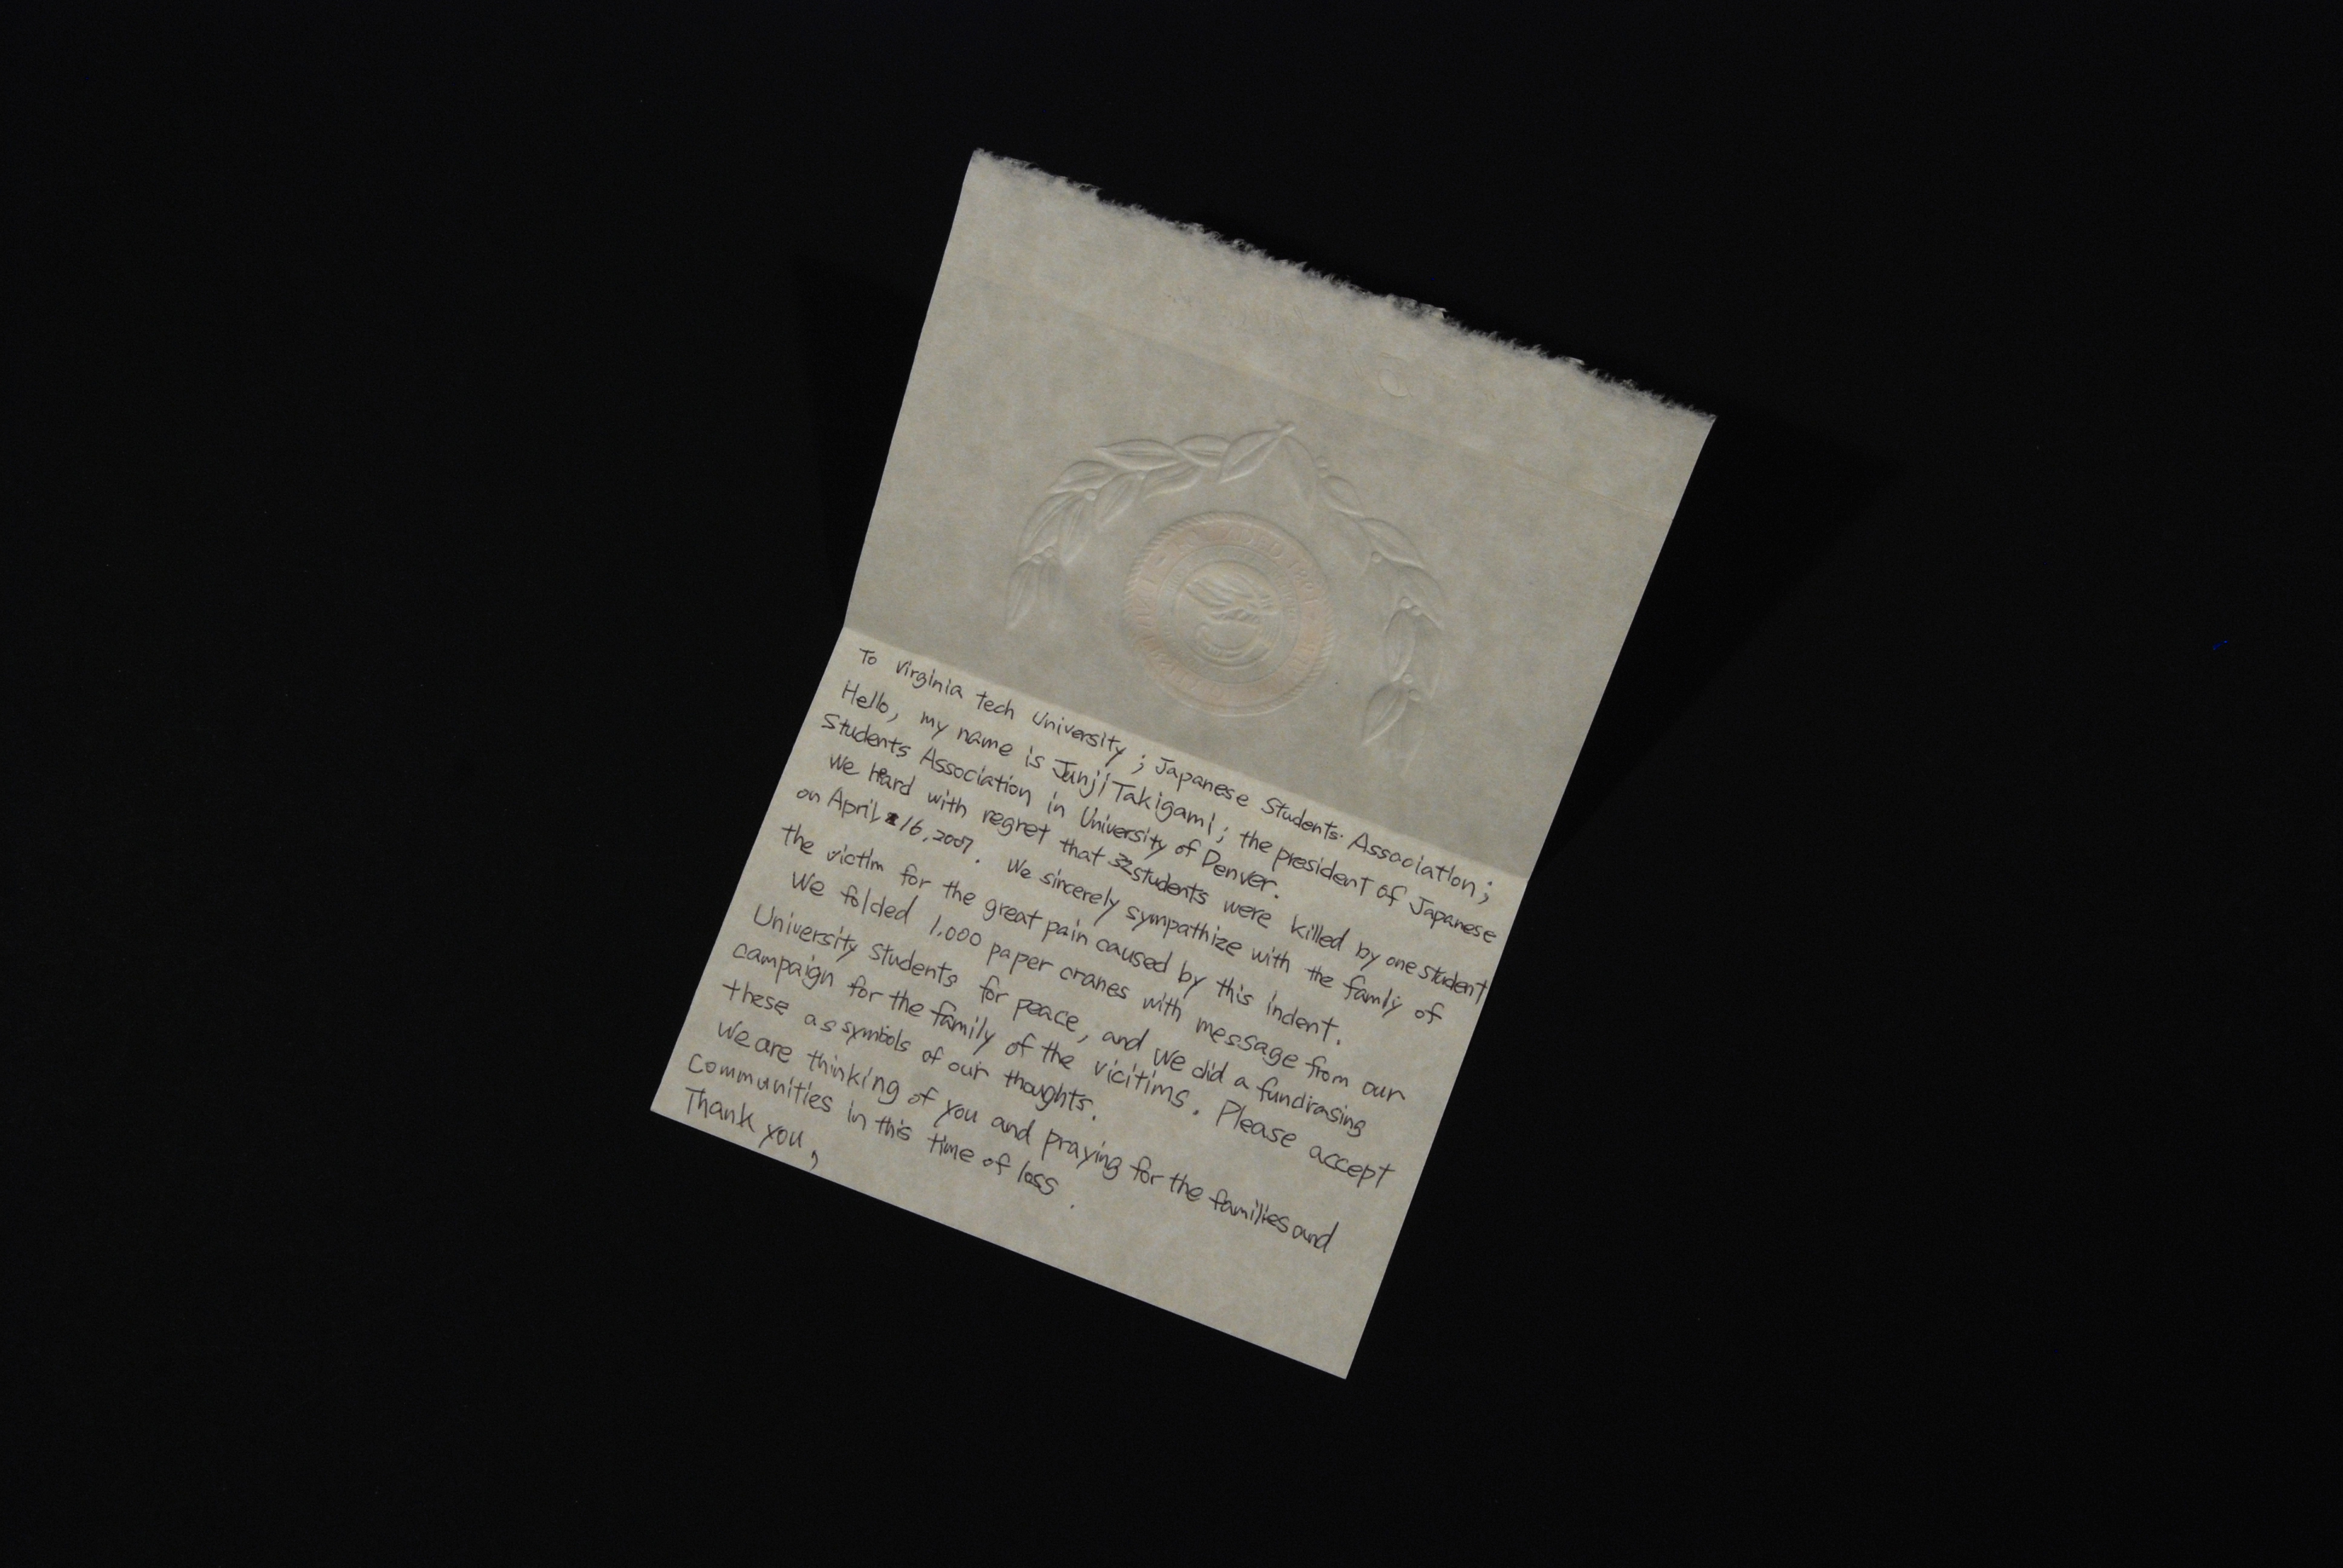 To Virginia Tech University ; Japanese Students Association ;
Hello, my name is Junji Takigami ; the president of Japanese
Students Association in University of Denver.
We heard with regret that 32 students were killed by one student
on April 16, 2007. We sincerely sympathize with the family of
the victim for the great pain caused by this indent.
We folded 1.000 paper cranes with message from our
University students for peace, and we did a fundrasing
campaign for the family of the vicitims. Please accept
these as symbols of our thoughts.
We are thinking of you and praying for the families and
Communities in this time of loss.
Thank you,